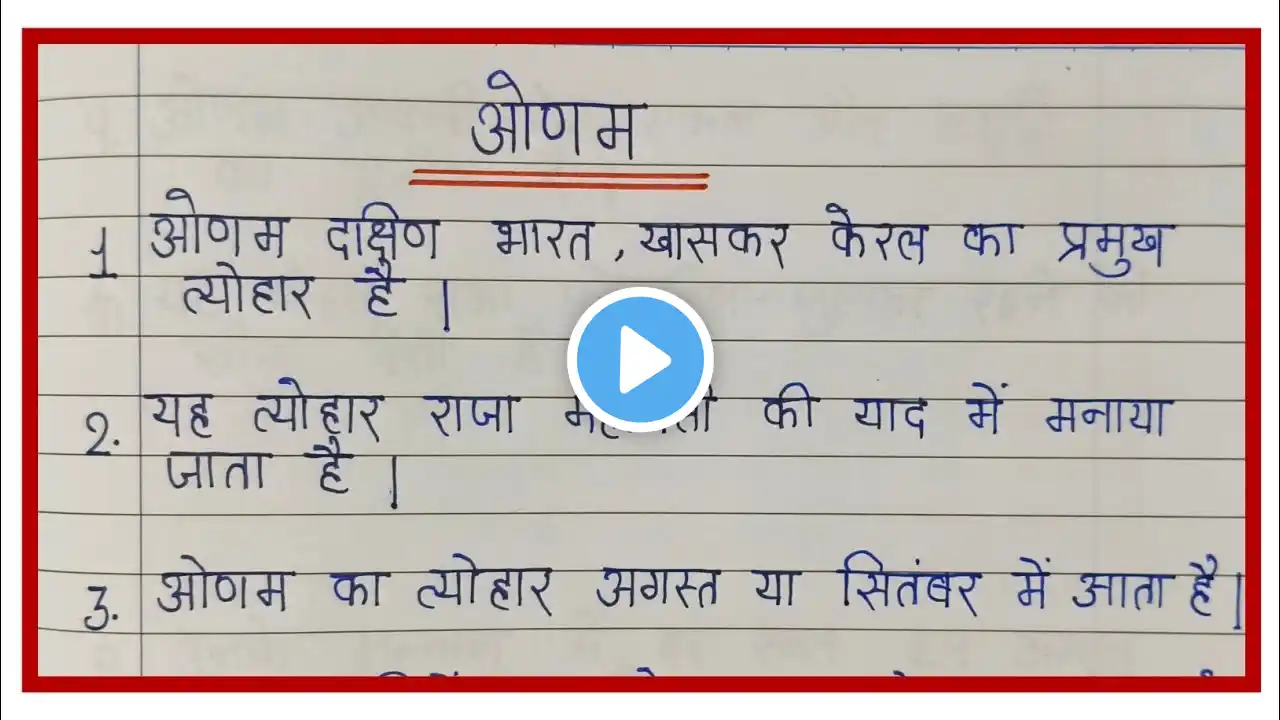 ओणम
1 ओणम दक्षिण भारत, खासकर केरल का प्रमुख
त्योहार है ।
2. यह त्योहार राजा की याद में मनाया
जाता है ।
3. ओणम का त्योहार अगस्त या सितंबर में आता है ।